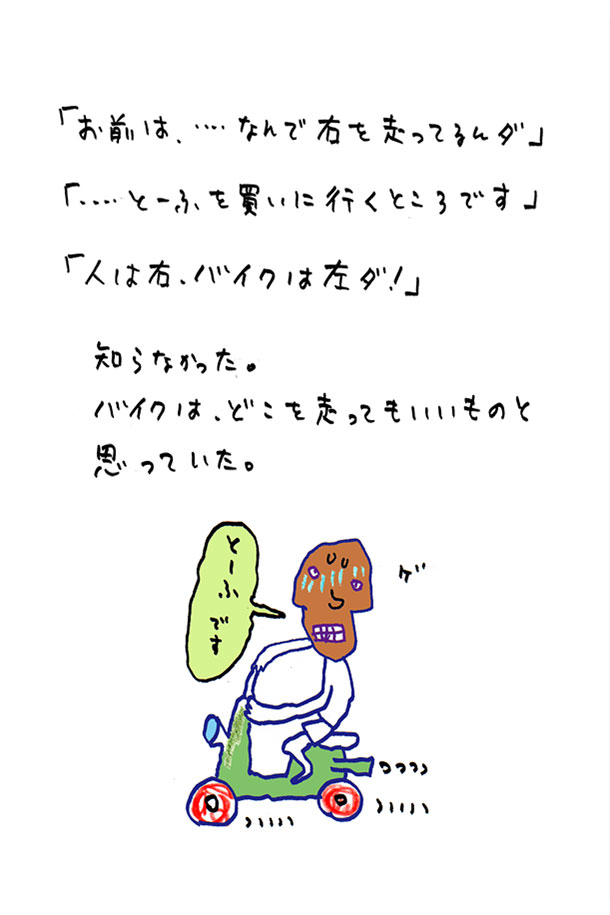 「お前は、‥‥なんで右を走ってるんダ」
「‥‥とーふを買いに行くところです」
「人は右、バイクは左ダ!」
知らなかった。
バイクは、どこを走ってもいいものと
思っていた。
とーふです
ゲ